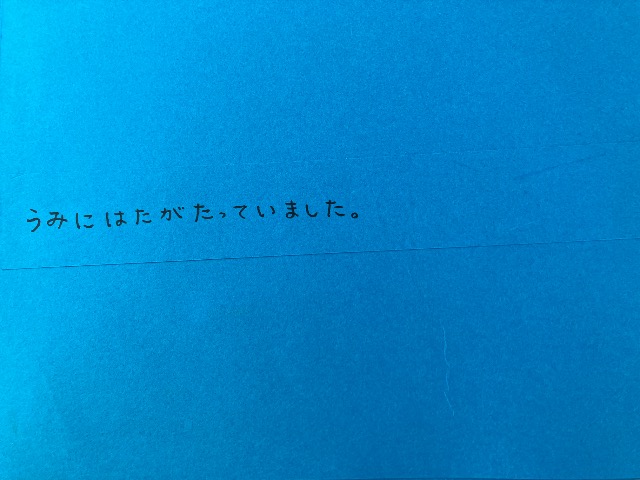 うみにはたがたっていました。